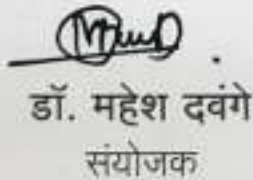 डॉ. महेश दवंगे
संयोजक